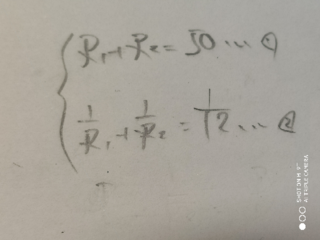 R₁+R₂=50...①
1/R₁+1/R₂=1/12...②
SHOT ON MI 9
AI TRIPLE CAMERA